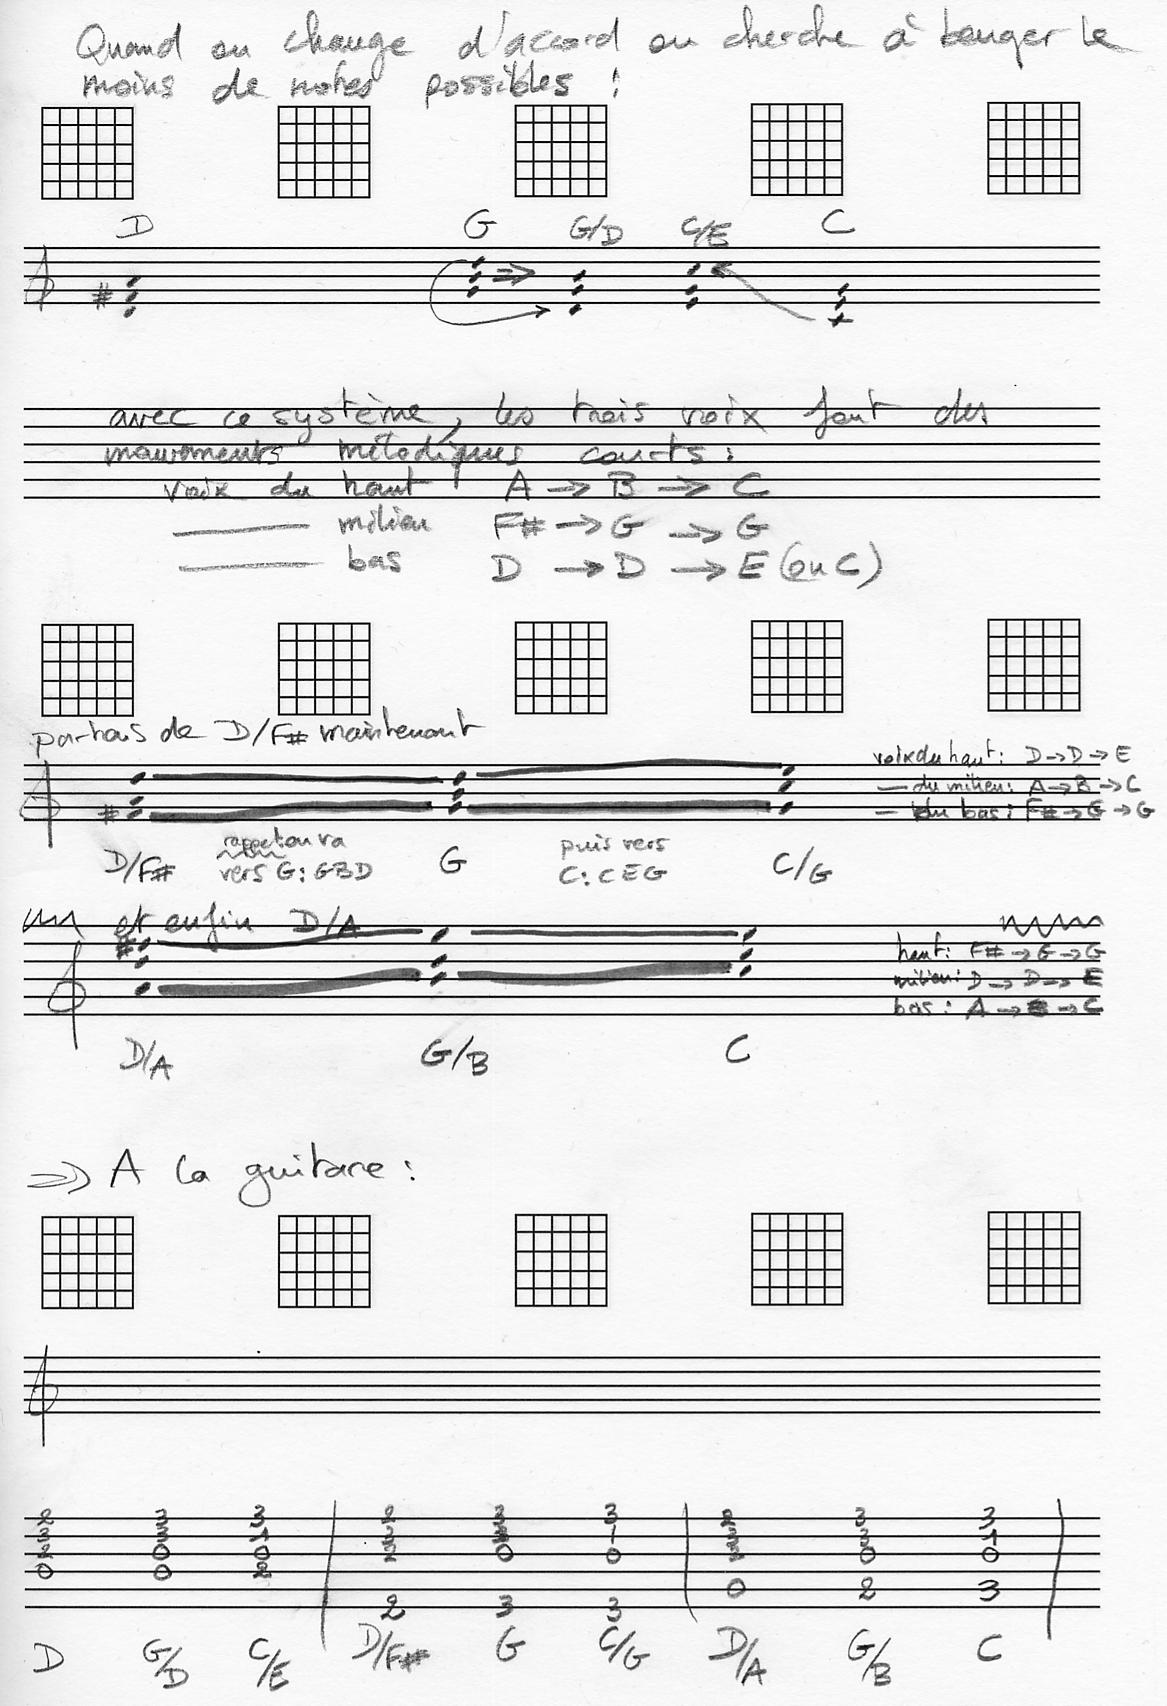 Quand on change d'accord on cherche à bouger le
moins de notes possibles !
D G G/D C/E C
#
avec ce système, les trois voix font des
mouvements mélodiques courts :
voix du haut A → B → C
—— milieu F# → G → G
—— bas D → D → E (ou C)
partons de D/F# maintenant
voix du haut : D → D → E
— du milieu : A → B → C
— du bas : F# → G → G
#
rappel on va puis vers
D/F# vers G : GBD G C : C E G C/G
et enfin D/A
#
haut : F# → G → G
milieu : D → D → E
bas : A → B → C
D/A G/B C
=> A la guitare :
2 3 3 2 3 3 2 3 3
3 3 1 3 3 1 3 3 1
2 0 0 2 0 0 2 0 0
0 0 2
0 2 3
2 3 3
D G/D C/E D/F# G C/G D/A G/B C